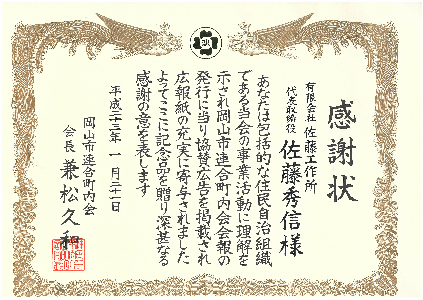 感謝状
有限会社 佐藤工作所
代表取締役 佐藤秀信様
あなたは包括的な住民自治組織
である当会の事業活動に理解を
示され岡山市連合町内会会報の
発行に当り協賛広告を掲載され
広報紙の充実に寄与されました
よってここに記念品を贈り深甚なる
感謝の意を表します
平成二十三年 一月二十一日
岡山市連合町内会
会長 兼松久和